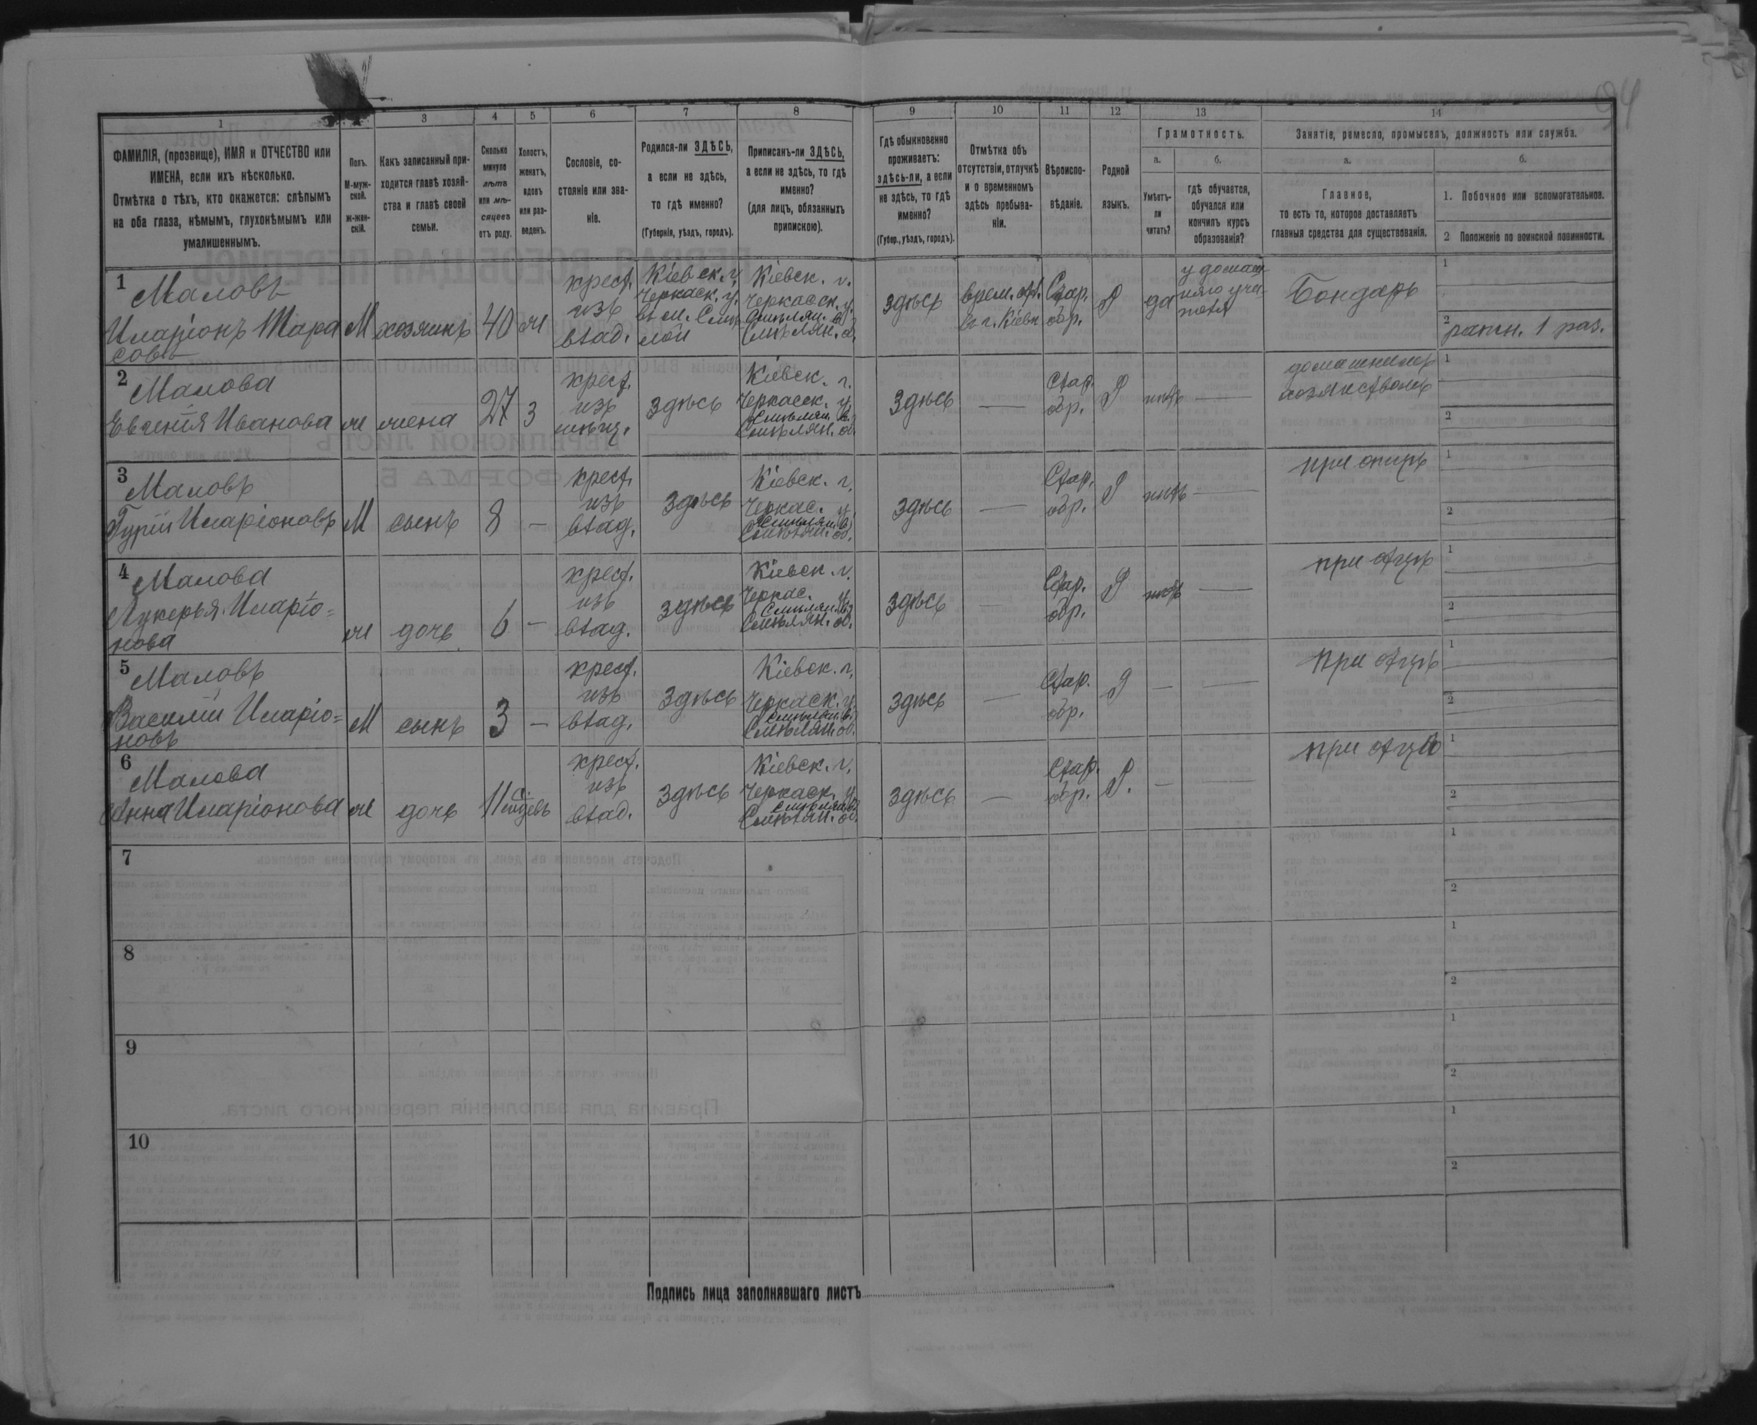 94
1
3
4
5
6
7
8
9
10
11
12
13
14
ФАМИЛІЯ, (прозвище), ИМЯ и ОТЧЕСТВО или
ИМЕНА, если ихъ нѣсколько.
Отмѣтка о тѣхъ, кто окажется: слѣпымъ
на оба глаза, нѣмымъ, глухонѣмымъ или
умалишеннымъ.
Полъ.
М-муж-
ской.
ж-жен-
скій.
Какъ записанный при-
ходится главѣ хозяй-
ства и главѣ своей
семьи.
Сколько
минуло
лѣтъ
или мѣ-
сяцевъ
отъ роду.
Холостъ,
женатъ,
вдовъ
или раз-
веденъ.
Сословіе, со-
стояніе или зва-
ніе.
Родился-ли ЗДѢСЬ,
а если не здѣсь,
то гдѣ именно?
(Губернія, уѣздъ, городъ).
Приписанъ-ли ЗДѢСЬ,
а если не здѣсь, то гдѣ
именно?
(для лицъ, обязанныхъ
припискою).
Гдѣ обыкновенно
проживаетъ:
здѣсь-ли, а если
не здѣсь, то гдѣ
именно?
(Губер., уѣздъ, городъ).
Отмѣтка объ
отсутствіи, отлучкѣ
и о временномъ
здѣсь пребыва-
ніи.
Вѣроиспо-
вѣданіе.
Родной
языкъ.
Грамотность.
а.
Умѣетъ-
ли
читать?
б.
гдѣ обучается,
обучался или
кончилъ курсъ
образованія?
Занятіе, ремесло, промыселъ, должность или служба.
а.
Главное,
то есть то, которое доставляетъ
главныя средства для существованія.
б.
1. Побочное или вспомогательное.
2 Положеніе по воинской повинности.
1 Маловъ
Иларіонъ Тара
совъ
М
хозяинъ
40
ж
крест.
изъ
влад.
Кіевск. г.
Черкаск. у.
въ м. Смѣ
лой
Кіевск. г.
Черкасск. у.
Смѣлян. в.
Смѣлян. об.
здѣсь
врем. отл.
въ г. Кіевъ
Стар.
обр.
Р
да
у домаш
няго учи
теля
Бондарь
1
2 ратн. 1 раз.
2 Малова
Евгенія Иванова
ж
жена
27
З
крест.
изъ
мѣщ.
здѣсь
Кіевск. г.
Черкасск. у.
Смѣлян. в.
Смѣлян. об.
здѣсь
—
Стар.
обр.
Р
нѣтъ
—
домашнимъ
хозяйствомъ
1
2
3 Маловъ
Гурій Иларіоновъ
М
сынъ
8
—
крест.
изъ
влад.
здѣсь
Кіевск. г.
Черкас. у.
Смѣлян. в.
Смѣлян. об.
здѣсь
—
Стар.
обр.
Р
нѣтъ
—
при отцѣ
1
2
4 Малова
Лукерья Иларіо=
нова
ж
дочь
6
—
крест.
изъ
влад.
здѣсь
Кіевск. г.
Черкас. у.
Смѣлян. в.
Смѣлян. об.
здѣсь
—
Стар.
обр.
Р
нѣтъ
—
при отцѣ
1
2
5 Маловъ
Василій Иларіо=
новъ
М
сынъ
3
—
крест.
изъ
влад.
здѣсь
Кіевск. г.
Черкаск. у.
Смѣлян. в.
Смѣлян. об.
здѣсь
—
Стар.
обр.
Р
—
—
при отцѣ
1
2
6 Малова
Анна Иларіонова
ж
дочь
11
крест.
изъ
влад.
здѣсь
Кіевск. г.
Черкаск. у.
Смѣлян. в.
Смѣлян. об.
здѣсь
—
Стар.
обр.
Р.
—
—
при отцѣ
1
2
7
1
2
8
1
2
9
1
2
10
1
2
Подпись лица заполнявшаго листъ